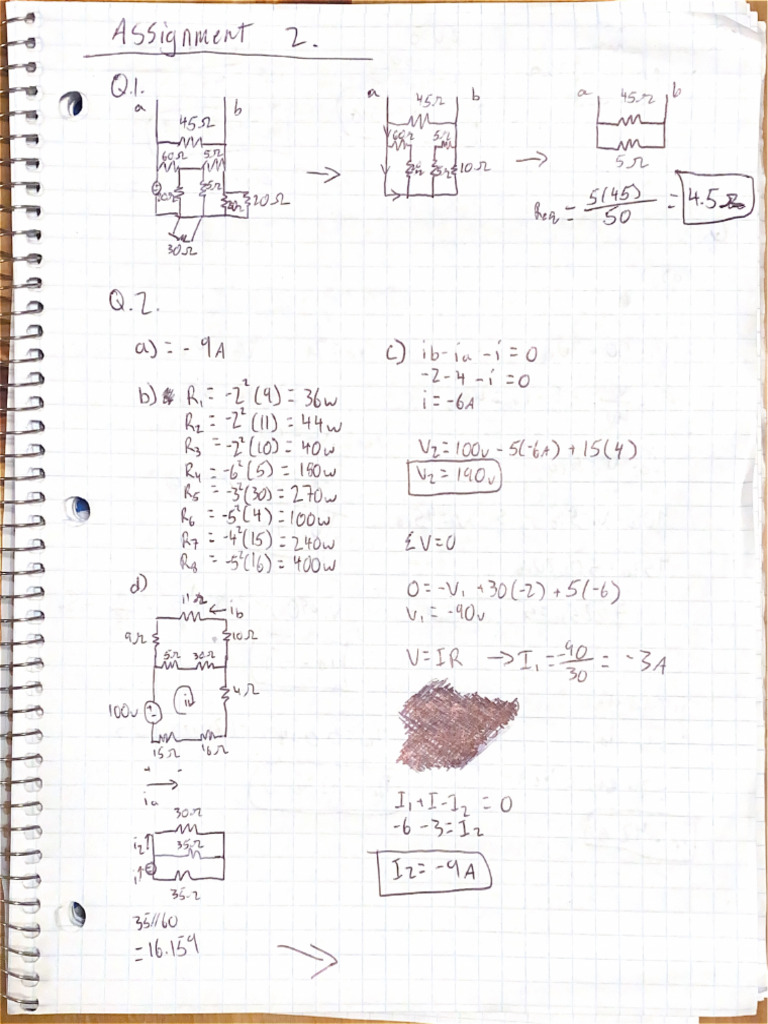 Assignment 2.
Q.1.
a b
45Ω
60Ω 5Ω
5Ω
20Ω 20Ω
30Ω
a b
45Ω
60Ω 5Ω
10Ω
a b
45Ω
5Ω
Req = 5(45)/50 = 4.5Ω
Q.2.
a) = - 9A
b) R₁ = -2²(9) = 36w
R₂ = -2²(11) = 44w
R₃ = -2²(10) = 40w
R₄ = -6²(5) = 180w
R₅ = -3²(30) = 270w
R₆ = -5²(4) = 100w
R₇ = -4²(15) = 240w
R₈ = -5²(16) = 400w
c) ib - ia - i = 0
-2 - 4 - i = 0
i = -6A
V₂ = 100v - 5(-6A) + 15(4)
V₂ = 190v
ΣV=0
0 = -V₁ + 30(-2) + 5(-6)
V₁ = -90v
V = IR → I₁ = -90/30 = -3A
I₁ + I - I₂ = 0
-6 - 3 = I₂
I₂ = -9A
d)
11Ω ← ib
9Ω 10Ω
5Ω 30Ω
4Ω
100v + -
15Ω 16Ω
+ -
→
ia
30Ω
i₂ 35Ω
i
35Ω
35//60
= 16.159